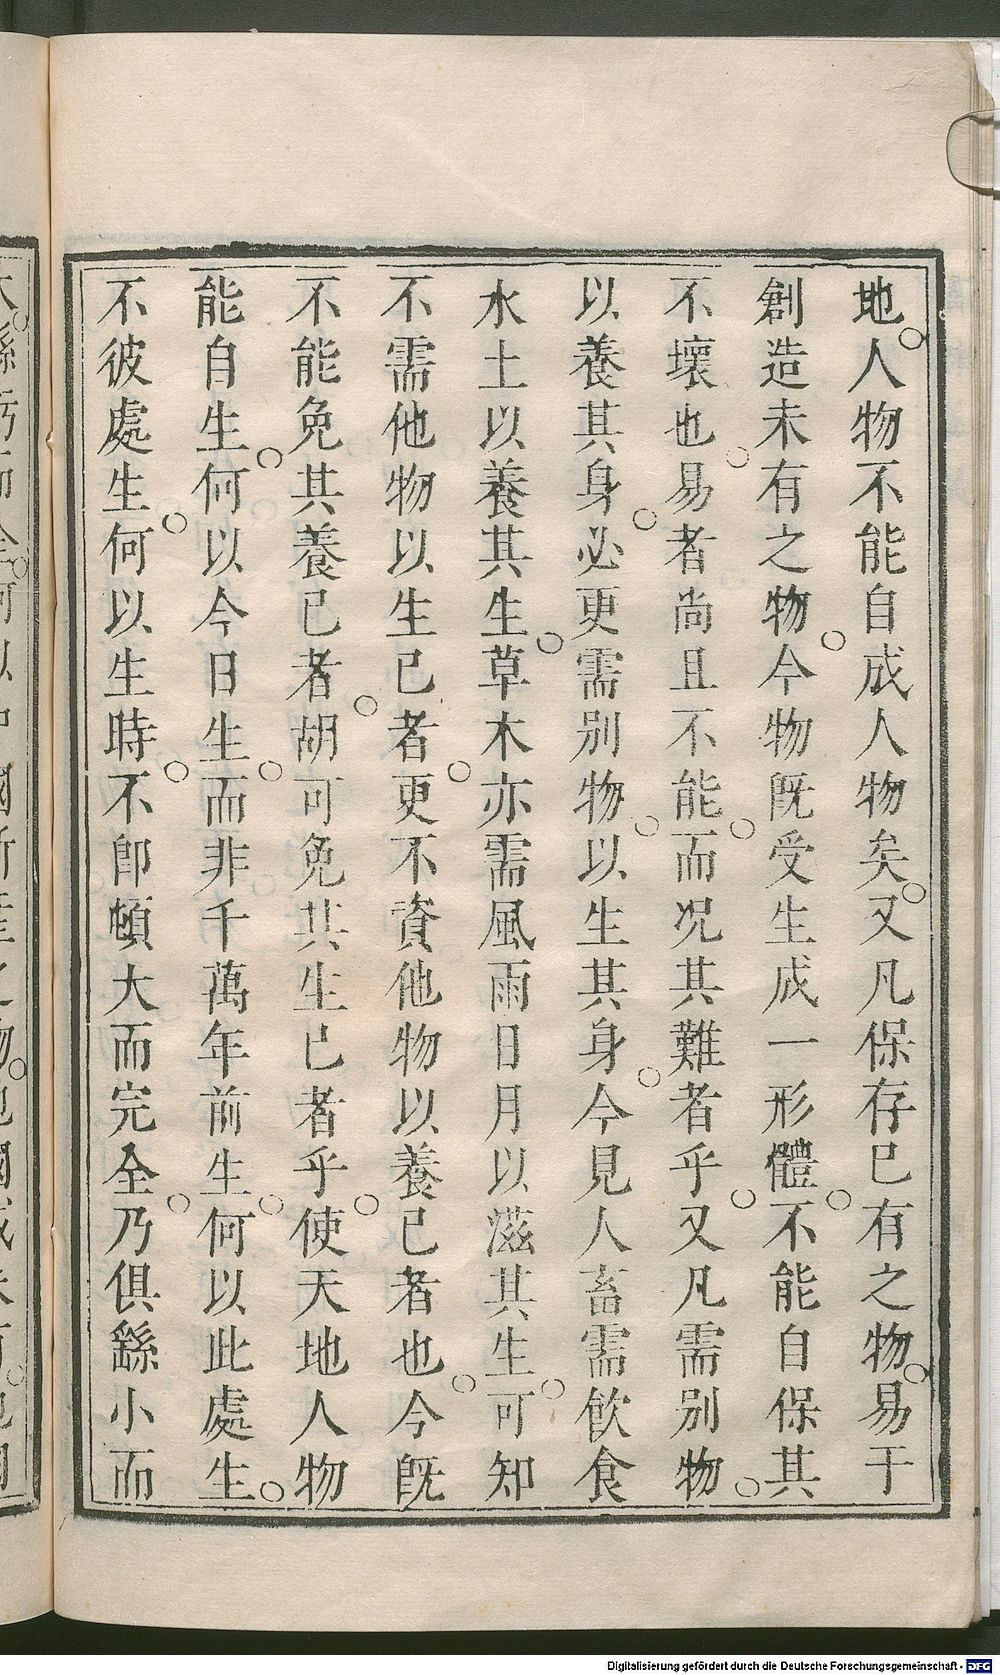 地。人物不能自成人物矣。又凡保存已有之物。易于
創造未有之物。今物旣受生成一形體。不能自保其
不壞也。易者尚且不能。而况其難者乎。又凡需別物。
以養其身。必更需別物。以生其身。今見人畜需飲食
水土以養其生。草木亦需風雨日月以滋其生。可知
不需他物以生已者。更不資他物以養已者也。今旣
不能免其養已者。胡可免其生已者乎。使天地人物
能自生。何以今日生。而非千萬年前生。何以此處生。
不彼處生。何以生時。不卽頓大而完全。乃俱繇小而
Digitalisierung gefördert durch die Deutsche Forschungsgemeinschaft - DFG